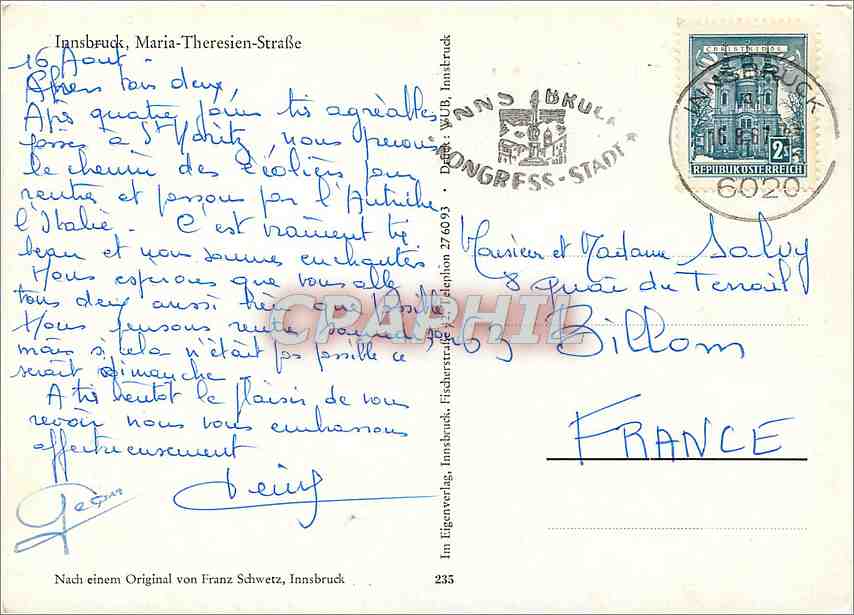 Innsbruck, Maria-Theresien-Straße
16 Aout -
Chers tous deux,
Après quatre jours très agréables
passés à St Moritz, nous prenons
le chemin des écoliers pour
rentrer et passons par l'Autriche
l'Italie. C'est vraiment très
beau et nous sommes enchantés
Nous espérons que vous allez
tous deux aussi bien que possible
Nous pensons rentrer samedi
mais si cela n'était pas possible ce
serait dimanche
A très bientôt le plaisir de vous
revoir nous vous embrassons
affectueusement
Nach einem Original von Franz Schwetz, Innsbruck
235
Im Eigenverlag, Innsbruck, Fischerstraße Telephon 27 60 93 · Druck: WUB, Innsbruck
INNSBRUCK
KONGRESS-STADT
CHRISTKINDL
2
REPUBLIK ÖSTERREICH
INNSBRUCK
6020
Monsieur et Madame Salvy
8 quai du Terrail
63 Billom
FRANCE
CPAPHIL